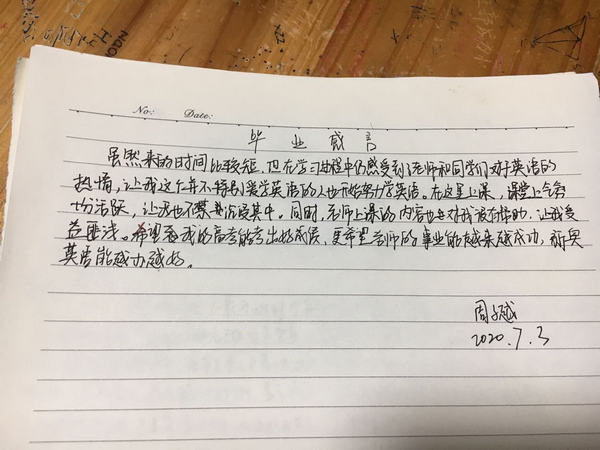 No:   Date:
毕业感言
虽然来的时间比较短，但在学习过程中仍感受到了老师和同学们对于英语的
热情，让我这个并不特别喜学英语的人也开始努力学英语。在这里上课，课堂上气氛
十分活跃，让我也不禁沉浸其中。同时，老师上课的内容也对我很有帮助，让我受
益匪浅。希望我的高考能考出好成绩，更希望老师的事业能越来越成功，新奥
英语能越办越好。
周越
2020.7.3